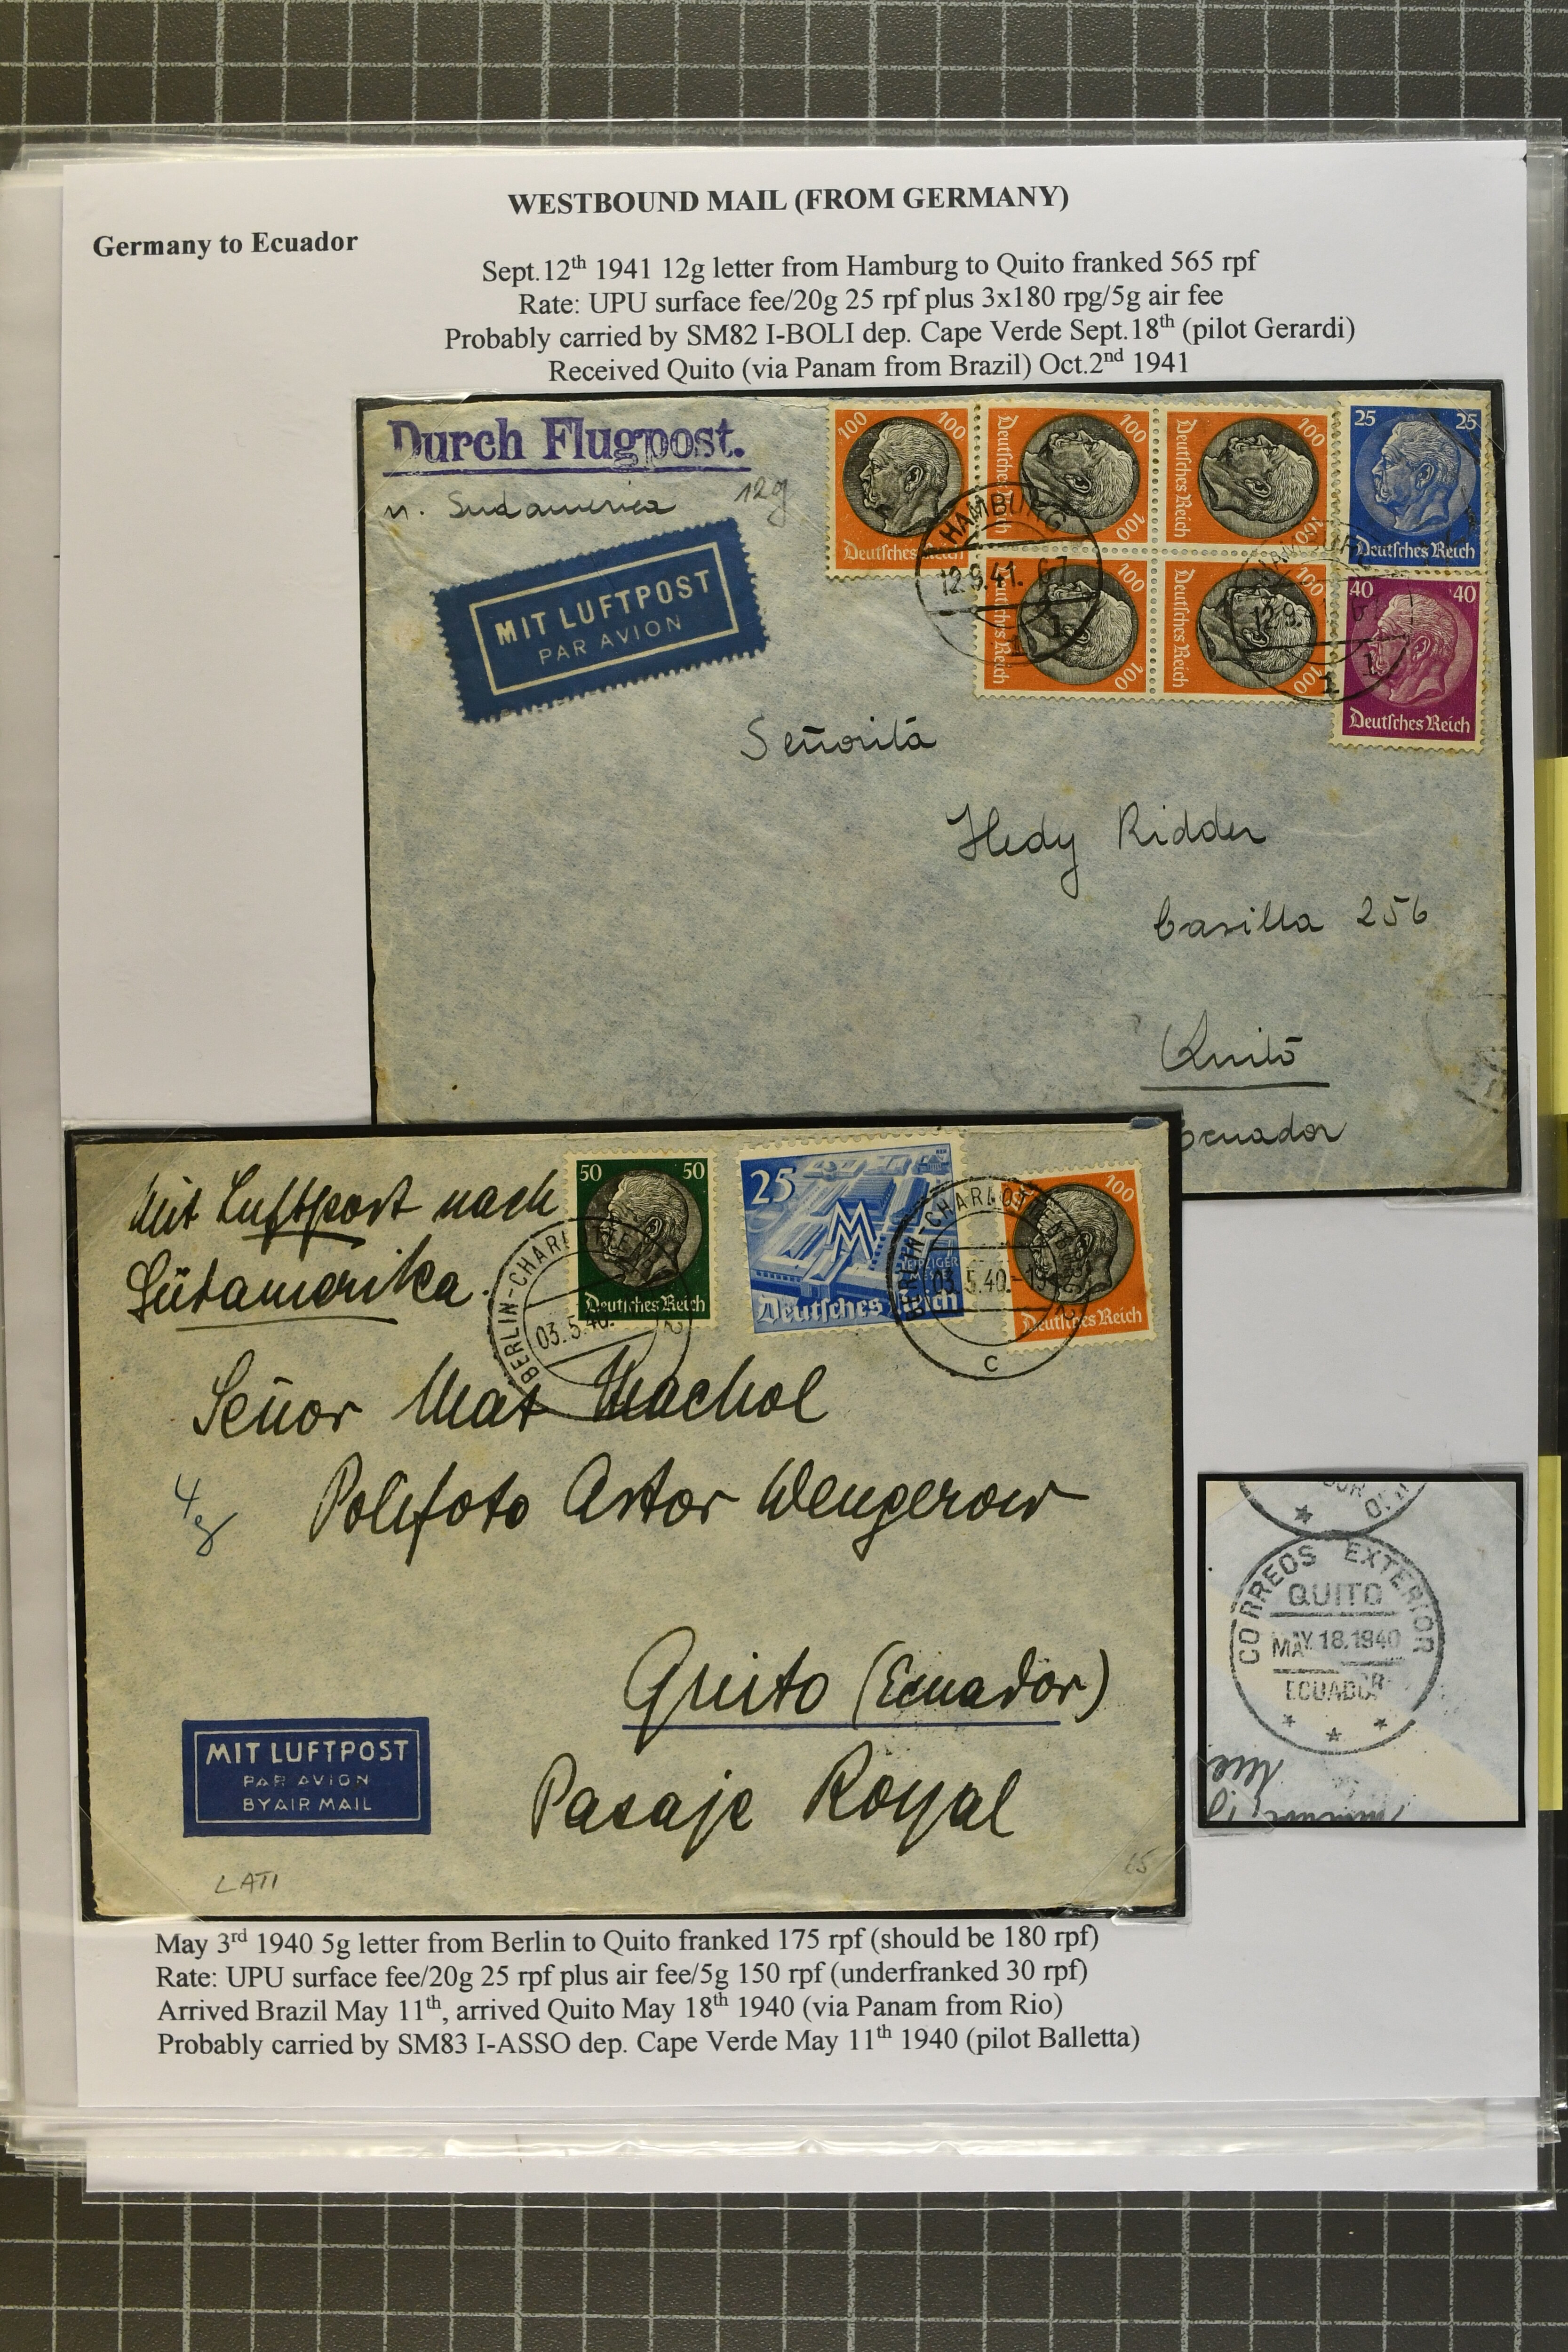 WESTBOUND MAIL (FROM GERMANY)
Germany to Ecuador
Sept.12th 1941 12g letter from Hamburg to Quito franked 565 rpf
Rate: UPU surface fee/20g 25 rpf plus 3x180 rpg/5g air fee
Probably carried by SM82 I-BOLI dep. Cape Verde Sept.18th (pilot Gerardi)
Received Quito (via Panam from Brazil) Oct.2nd 1941
Durch Flugpost.
n. Südamerica 12g
MIT LUFTPOST
PAR AVION
100 100
Deutsches Reich
100
100
Deutsches Reich
100
100
Deutsches Reich
100
100
Deutsches Reich
100
100
Deutsches Reich
25 25
Deutsches Reich
40 40
Deutsches Reich
HAMBURG
12.9.41
1
12.9.
1
Señorita
Hedy Ridder
Casilla 256
Quito
Ecuador
Mit Luftpost nach
Südamerika.
50 50
Deutsches Reich
25
LEIPZIGER
MESSE
Deutsches Reich
100
Deutsches Reich
BERLIN-CHARLOTTENBURG
03.5.40.
BERLIN-CHARLOTTENBURG
03.5.40
c
Señor Max Machol
4g
Polifoto Astor Wengerow
Quito (Ecuador)
Pasaje Royal
MIT LUFTPOST
PAR AVION
BY AIR MAIL
LATI
CORREOS EXTERIOR
QUITO
MAY.18.1940
ECUADOR
May 3rd 1940 5g letter from Berlin to Quito franked 175 rpf (should be 180 rpf)
Rate: UPU surface fee/20g 25 rpf plus air fee/5g 150 rpf (underfranked 30 rpf)
Arrived Brazil May 11th, arrived Quito May 18th 1940 (via Panam from Rio)
Probably carried by SM83 I-ASSO dep. Cape Verde May 11th 1940 (pilot Balletta)